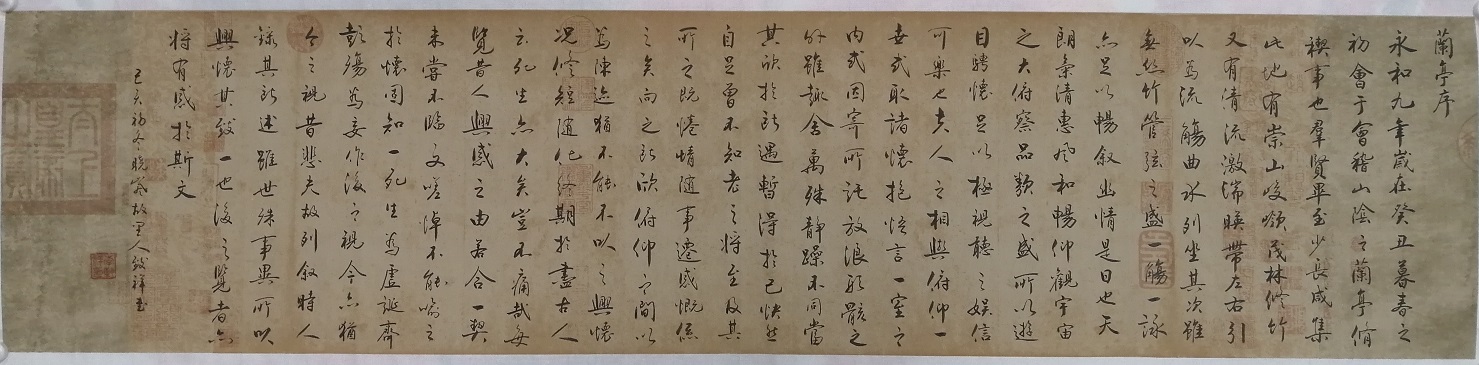 蘭亭序
永和九年歲在癸丑暮春之
初會于會稽山陰之蘭亭脩
禊事也羣賢畢至少長咸集
此地有崇山峻領茂林修竹
又有清流激湍暎帶左右引
以為流觴曲水列坐其次雖
無絲竹管弦之盛一觴一詠
亦足以暢敘幽情是日也天
朗氣清惠風和暢仰觀宇宙
之大俯察品類之盛所以遊
目騁懷足以極視聽之娛信
可樂也夫人之相與俯仰一
世或取諸懷抱悟言一室之
內或因寄所託放浪形骸之
外雖趣舍萬殊靜躁不同當
其欣於所遇暫得於己快然
自足曾不知老之將至及其
所之既惓情隨事遷感慨係
之矣向之所欣俯仰之間以
為陳迹猶不能不以之興懷
況修短隨化終期於盡古人
云死生亦大矣豈不痛哉每
覽昔人興感之由若合一契
未嘗不臨文嗟悼不能喻之
於懷固知一死生為虛誕齊
彭殤為妄作後之視今亦猶
今之視昔悲夫故列敘時人
錄其所述雖世殊事異所以
興懷其致一也後之覽者亦
將有感於斯文
己亥初冬晚故里人祥書